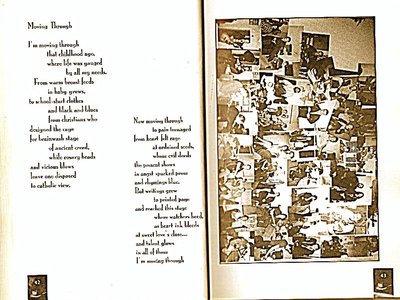 Moving Through
I'm moving through
that childhood ago,
where life was gauged
by all my needs.
From warm breast feeds
in baby grows,
to school-start clothes
and black and blues
from christians who
designed the cage
for brainwash stage
of ancient creed,
while rosary beads
and vicious blows
leave one disposed
to catholic view.
Now moving through
to pain teenaged
from heart felt rage
at ordained seeds,
whose evil deeds
the present shows
in angst sparked prose
and rhymings blue.
But writings grew
to printed page
and reached this stage
where watchers heed,
as heart ink bleeds
at sweet love's close....
and talent glows
in all of those
I'm moving through
42
43